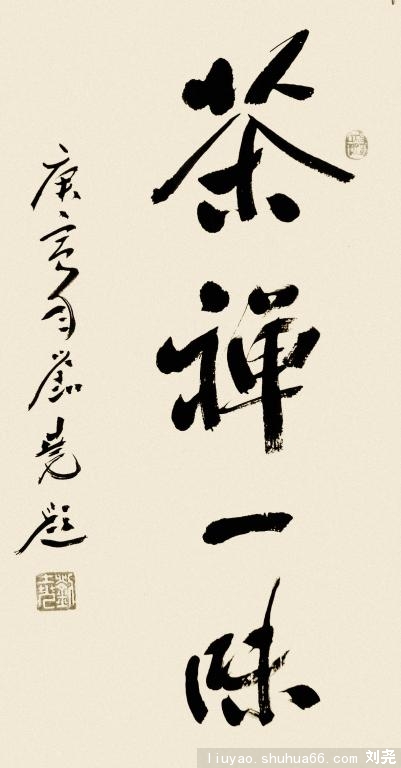 茶禪一味
庚寅月劉堯題
劉堯
liuyao.shuhua66.com 刘尧